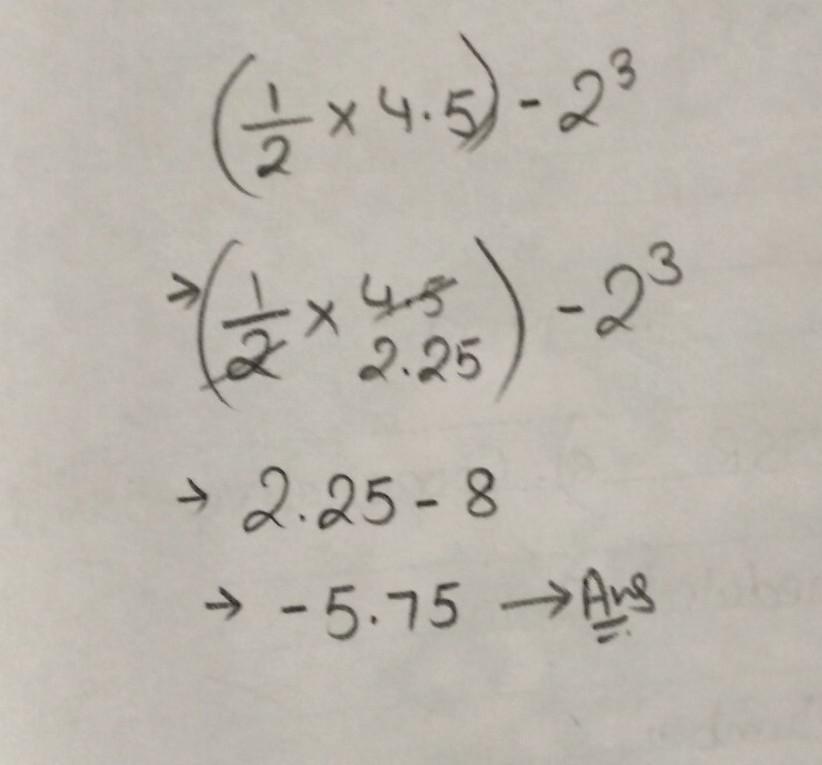 (1/2 × 4.5) - 2³
→ (1/2 × 4.5) - 2³
2.25
→ 2.25 - 8
→ -5.75 → Ans